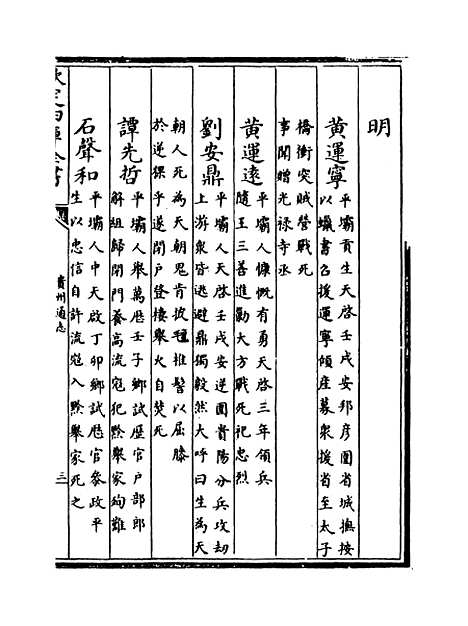 明
黄運寧平壩貢生天啓壬戌安邦彦圍省城撫按
以蠟書召援運寧傾産募衆援省至太子
橋衝突賊營戰死
事聞贈光禄寺丞
黄運逵平壩人慷慨有勇天啓三年領兵
隨王三善進勦大方戰死祀忠烈
劉安鼎平壩人天啓壬戌安逆圍貴陽分兵攻刼
上游衆皆逃避鼎獨毅然大呼曰生為天
朝人死為天朝鬼肯披氊椎髻以屈膝
於逆猓乎遂閉户登樓舉火自焚死
譚先哲平壩人舉萬厯壬子鄉試歴官户部郎
解組歸閉門養高流寇犯黔舉家殉難
石聲和平壩人中天啟丁卯鄉試厯官叅政平
生以忠信自許流寇入黔舉家死之
欽定四庫全書
貴州通志
三